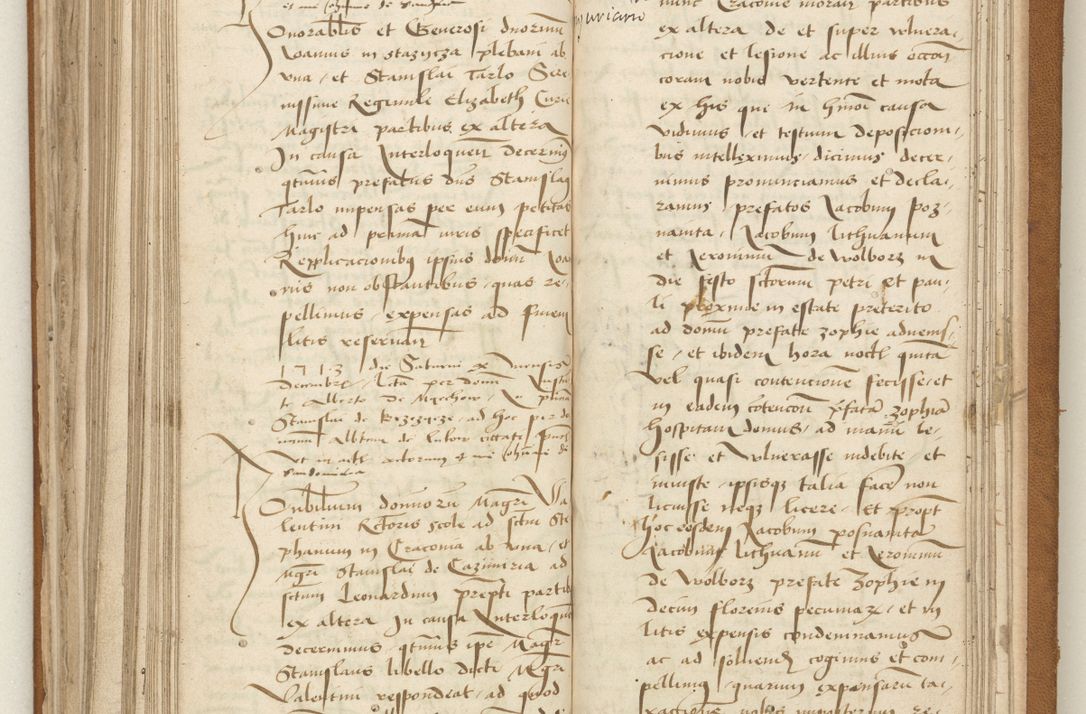 et me Johanne de Sandomiria
Honorabilis et Generosi dnorum
Joannis in Stazijcza plebani ab
vna / et Stanislai Tarlo Sere
nissime Reginule Elizabeth Curie
Magistri partibus ex altera
In causa Interloquen decernim9
qtinus prefatus dns Stanislaus
Tarlo impensas per eum petitas
hinc ad primam iuris specificet
Replicacionibq ipsius domini Joan
nis non obstantibus / quas re
pellimus / expensas ad finem
litis reservan
1 7 1 3 die Saturni
Decembr / lata per
te Alberto de Myechow
Stanislai de / ad hoc per
Sandomiria
Honorabilium dominorum Magri Va
lentini Rectoris scole ad sctm Ste
phanum in Cracovia ab vna / et
mgri Stanislai de Cazimiria ad
sctum Leonardum prepti partib
ex altera In causa Interloquen
decernimus / qtinus ipse Magr
Stanislaus libello dicti Mgri
Valentini respondeat / ad quod
nunc Cracovie moran partibus
ex altera de et super vulnera,
cione et lesione ac illius occan
coram nobis vertente et mota
ex his que in hmoi causa
vidimus / et testium deposicioni,
bus intelleximus / dicimus decer,
nimus pronunciamus et decla,
ramus / prefatos Jacobum poz,
nanita / Jacobum Lithuanum
et Jeronimum de Wolborz in
die festo sctorum petri et pau,
li proxime in estate preterito
ad domum prefate Zophie adveniss,
se / et ibidem hora noctis quinta
vel quasi contencione fecisse / et
in eadem cotencon prefatam Zophiam
hospitam domus / ad manum le,
sisse et vulnerasse indebite / et
iniuste / ipsisqz talia facere non
licuisse neqz licere / Et propt
hoc eosdem Jacobum posnanita
Jacobum Lithuanum et Jeronimum
de Wolborz prefate Zophie in
decem florenis pecuniarum / et in
litis expensis condemnamus
ac ad solvend cogimus et com,
pellimus / quarum expensarum ta,
xacionem nobis